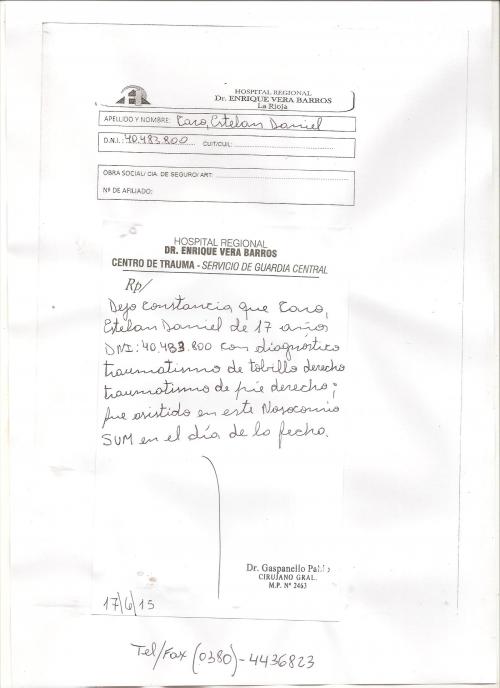 HOSPITAL REGIONAL
Dr. ENRIQUE VERA BARROS
La Rioja
APELLIDO Y NOMBRE: Caro, Esteban Daniel
D.N.I.: 40.483.800 CUIT/CUIL:
OBRA SOCIAL/ CIA. DE SEGURO/ ART:
Nº DE AFILIADO:
HOSPITAL REGIONAL
DR. ENRIQUE VERA BARROS
CENTRO DE TRAUMA - SERVICIO DE GUARDIA CENTRAL
Rp/
Dejo constancia que Caro,
Esteban Daniel de 17 años
DNI: 40.483.800 con diagnostico
traumatismo de tobillo derecho
traumatismo de pie derecho;
fue asistido en este Nosocomio
SUM en el día de la fecha.
Dr. Gaspanello Pablo
CIRUJANO GRAL.
M.P. Nº 2463
17/6/15
Tel/Fax (0380)-4436823